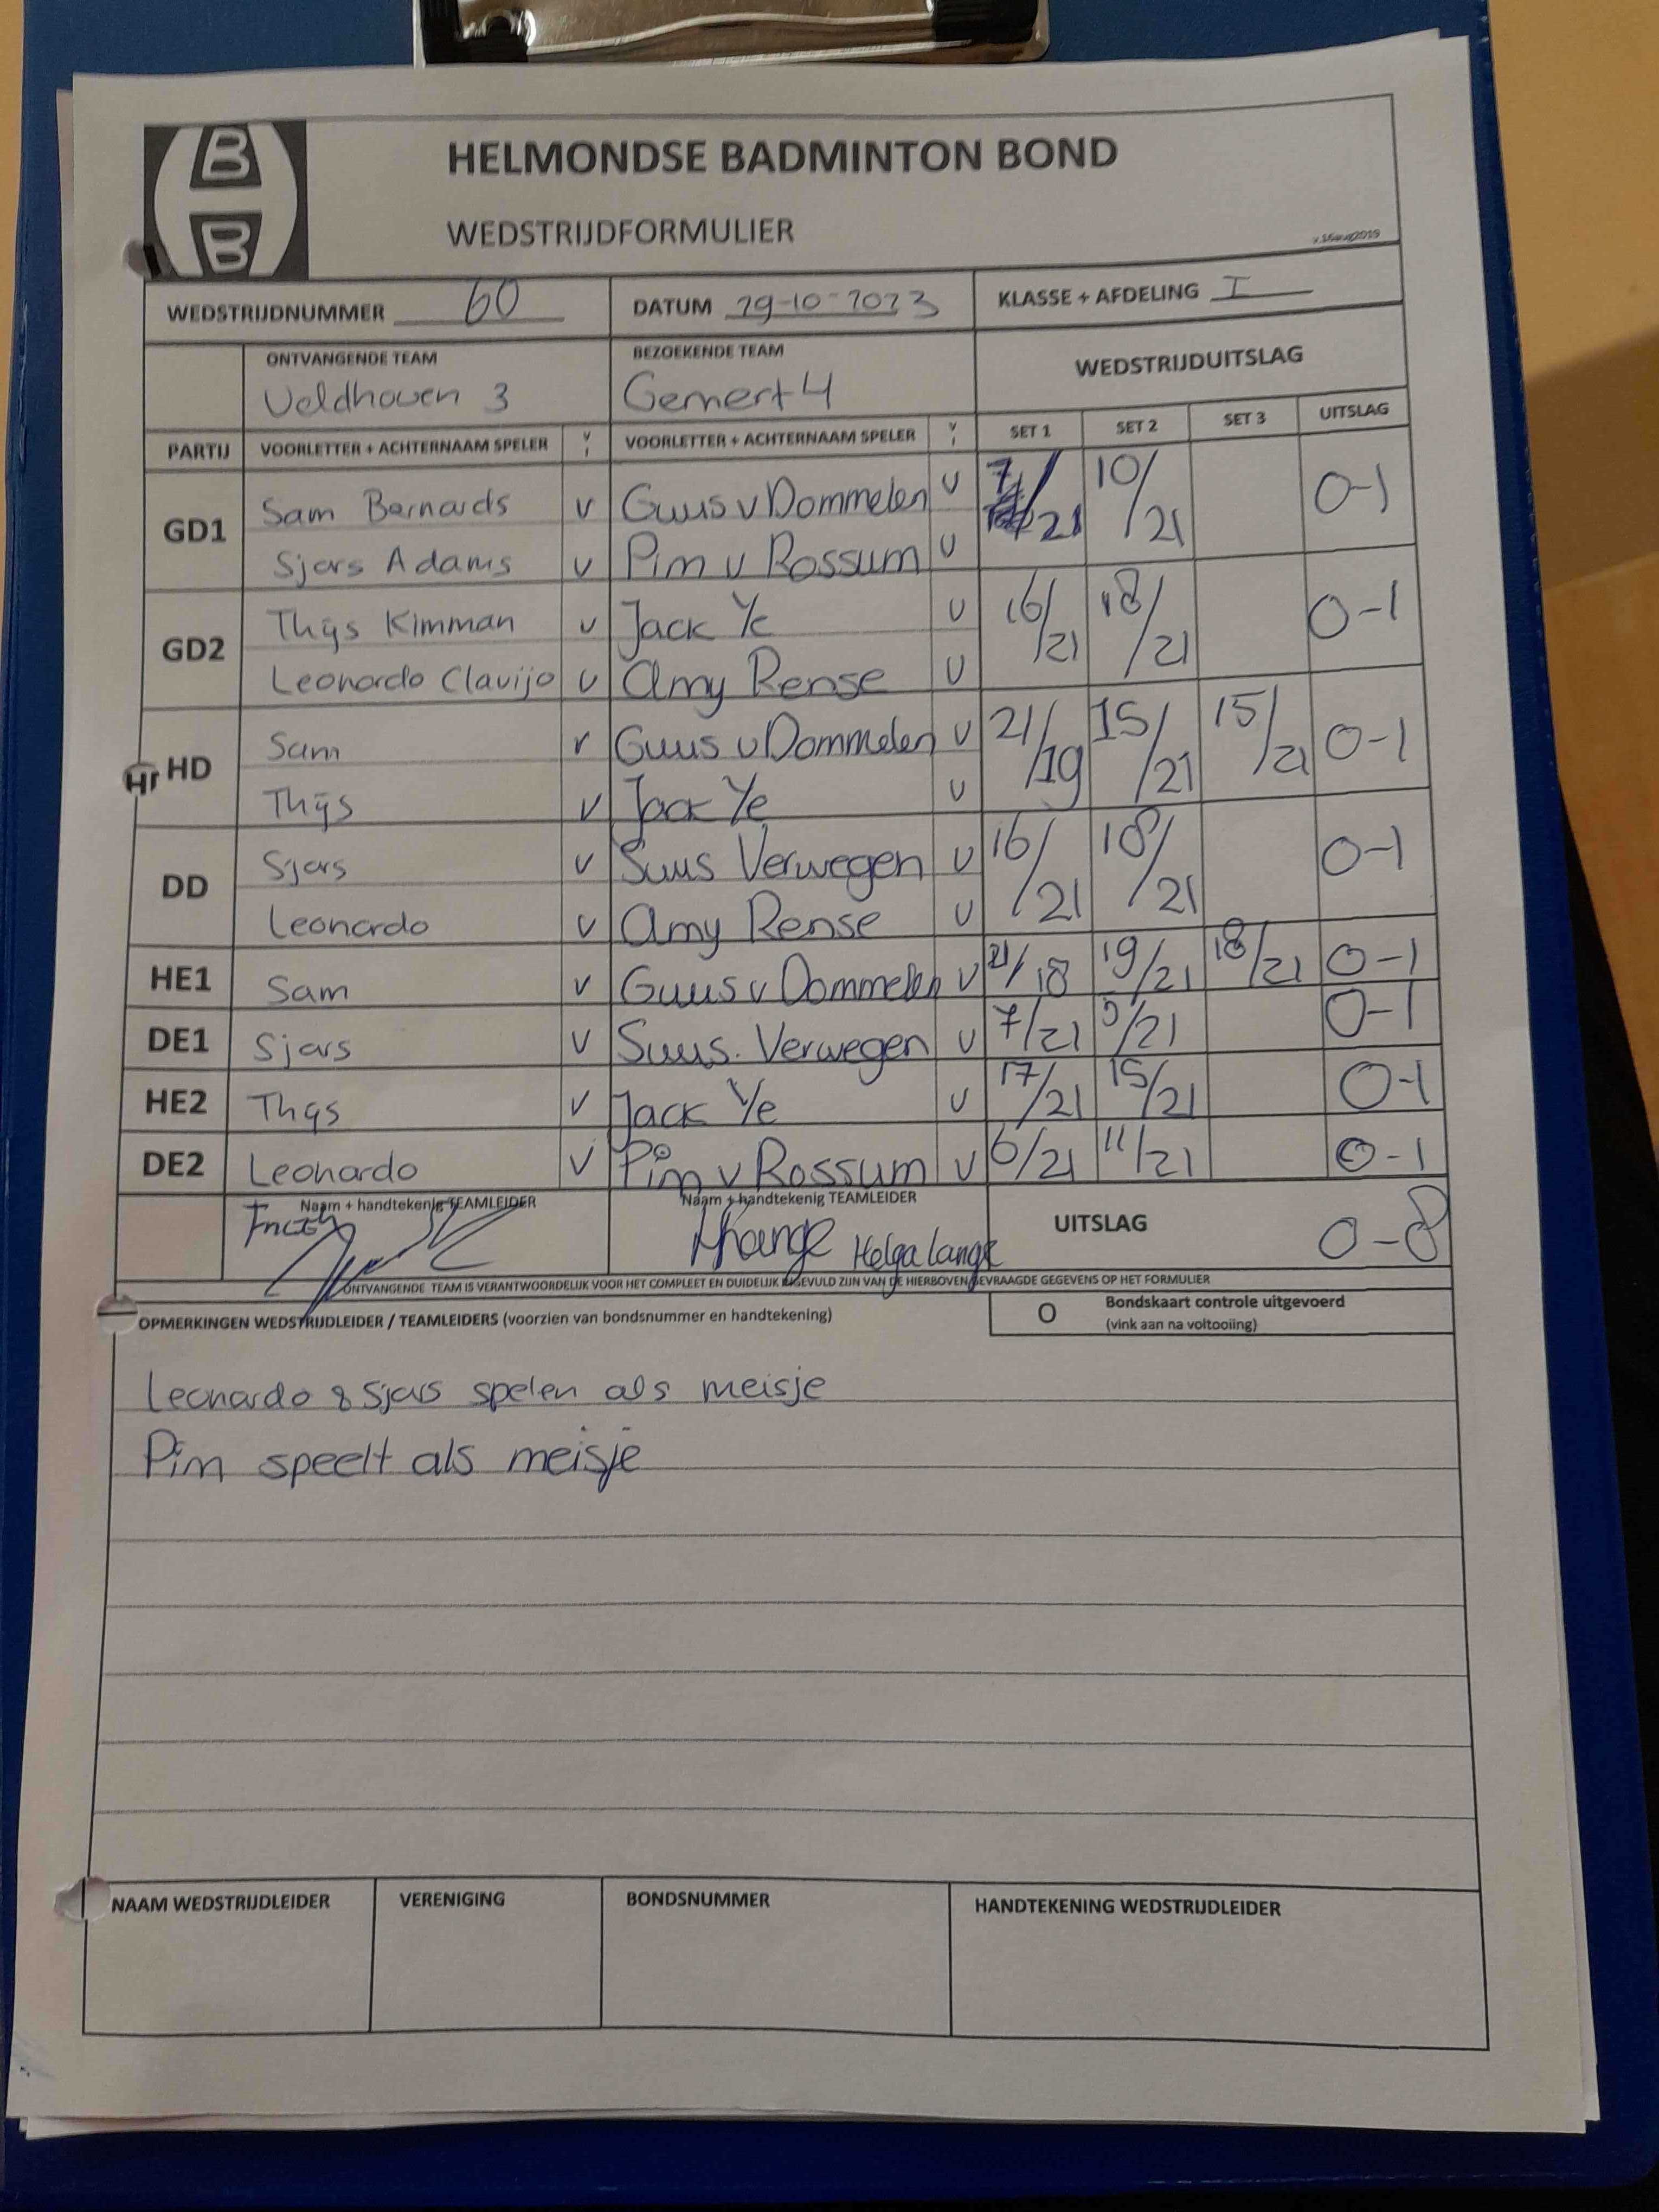 B
B
HELMONDSE BADMINTON BOND
WEDSTRIJDFORMULIER
v.16aug2019
WEDSTRIJDNUMMER 60 DATUM 29-10-2023 KLASSE + AFDELING I
ONTVANGENDE TEAM BEZOEKENDE TEAM WEDSTRIJDUITSLAG
Veldhoven 3 Gemert 4
PARTIJ VOORLETTER + ACHTERNAAM SPELER V VOORLETTER + ACHTERNAAM SPELER V SET 1 SET 2 SET 3 UITSLAG
GD1 Sam Bernards v Guus v Dommelen v 7/21 10/21 0-1
Sjors Adams v Pim v Rossum v
GD2 Thijs Kimman v Jack Ye v 16/21 18/21 0-1
Leonardo Clavijo v Amy Rense v
HD Sam v Guus v Dommelen v 21/19 15/21 15/21 0-1
Thijs v Jack Ye v
DD Sjors v Suus Verwegen v 16/21 18/21 0-1
Leonardo v Amy Rense v
HE1 Sam v Guus v Dommelen v 21/18 19/21 18/21 0-1
DE1 Sjors v Suus. Verwegen v 7/21 /21 0-1
HE2 Thijs v Jack Ye v 17/21 15/21 0-1
DE2 Leonardo v Pim v Rossum v 6/21 11/21 0-1
Naam + handtekenig TEAMLEIDER Naam + handtekenig TEAMLEIDER UITSLAG 0-8
Helga Lange
ONTVANGENDE TEAM IS VERANTWOORDELIJK VOOR HET COMPLEET EN DUIDELIJK INGEVULD ZIJN VAN DE HIERBOVEN GEVRAAGDE GEGEVENS OP HET FORMULIER
OPMERKINGEN WEDSTRIJDLEIDER / TEAMLEIDERS (voorzien van bondsnummer en handtekening) O Bondskaart controle uitgevoerd
(vink aan na voltooiing)
Leonardo & Sjors spelen als meisje
Pim speelt als meisje
NAAM WEDSTRIJDLEIDER VERENIGING BONDSNUMMER HANDTEKENING WEDSTRIJDLEIDER